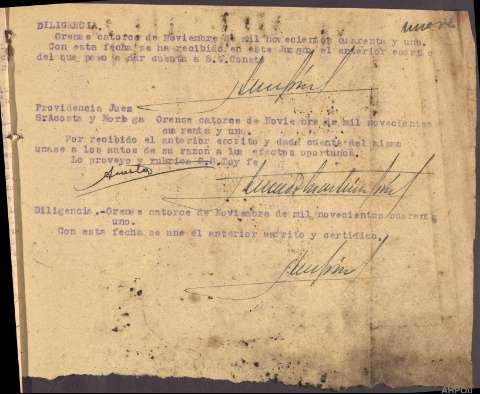 nueve
DILIGENCIA.
Orense catorce de Noviembre de mil novecientos cuarenta y uno.
Con esta fecha se ha recibido en este Juzgado el anterior escrito
del que paso a dar cuenta a S.S. Consta
Providencia Juez
SrAcosta y Noriega Orense catorce de Noviembre de mil novecientos
cuarenta y uno.
Por recibido el anterior escrito y dada cuenta del mismo
unase a los autos de su razon a los efectos oportunos.
Lo proveyo y rubrica S.S. Doy fe
Diligencia.-Orense catorce de Noviembre de mil novecientos cuarenta
uno.
Con esta fecha se une el anterior escrito y certifico.
AHPOU